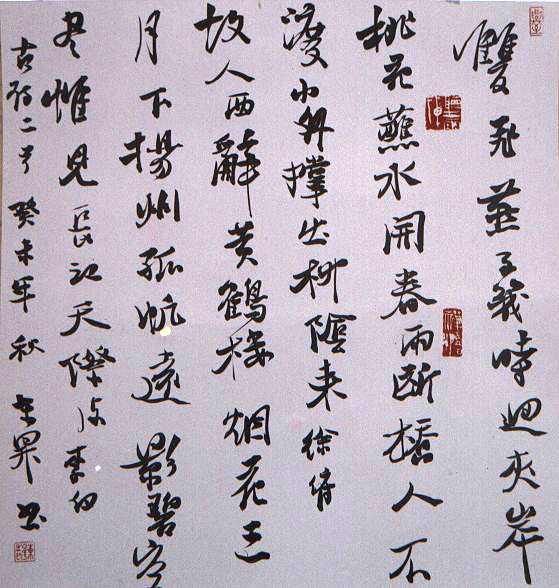 雙飛燕子幾時迴夾岸
桃花蘸水開春雨斷橋人不
渡小舟撐出柳陰來徐俯
故人西辭黄鶴樓烟花三
月下揚州孤帆遠影碧空
尽惟見長江天際流李白
古詩二首癸未年秋昇書